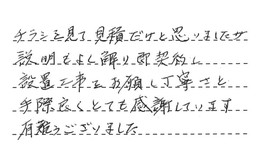 チラシを見て見積だけと思いましたが
説明もよく解り即契約に
設置工事もお願し丁寧さと
手際良くとても感謝しています
有難うございました